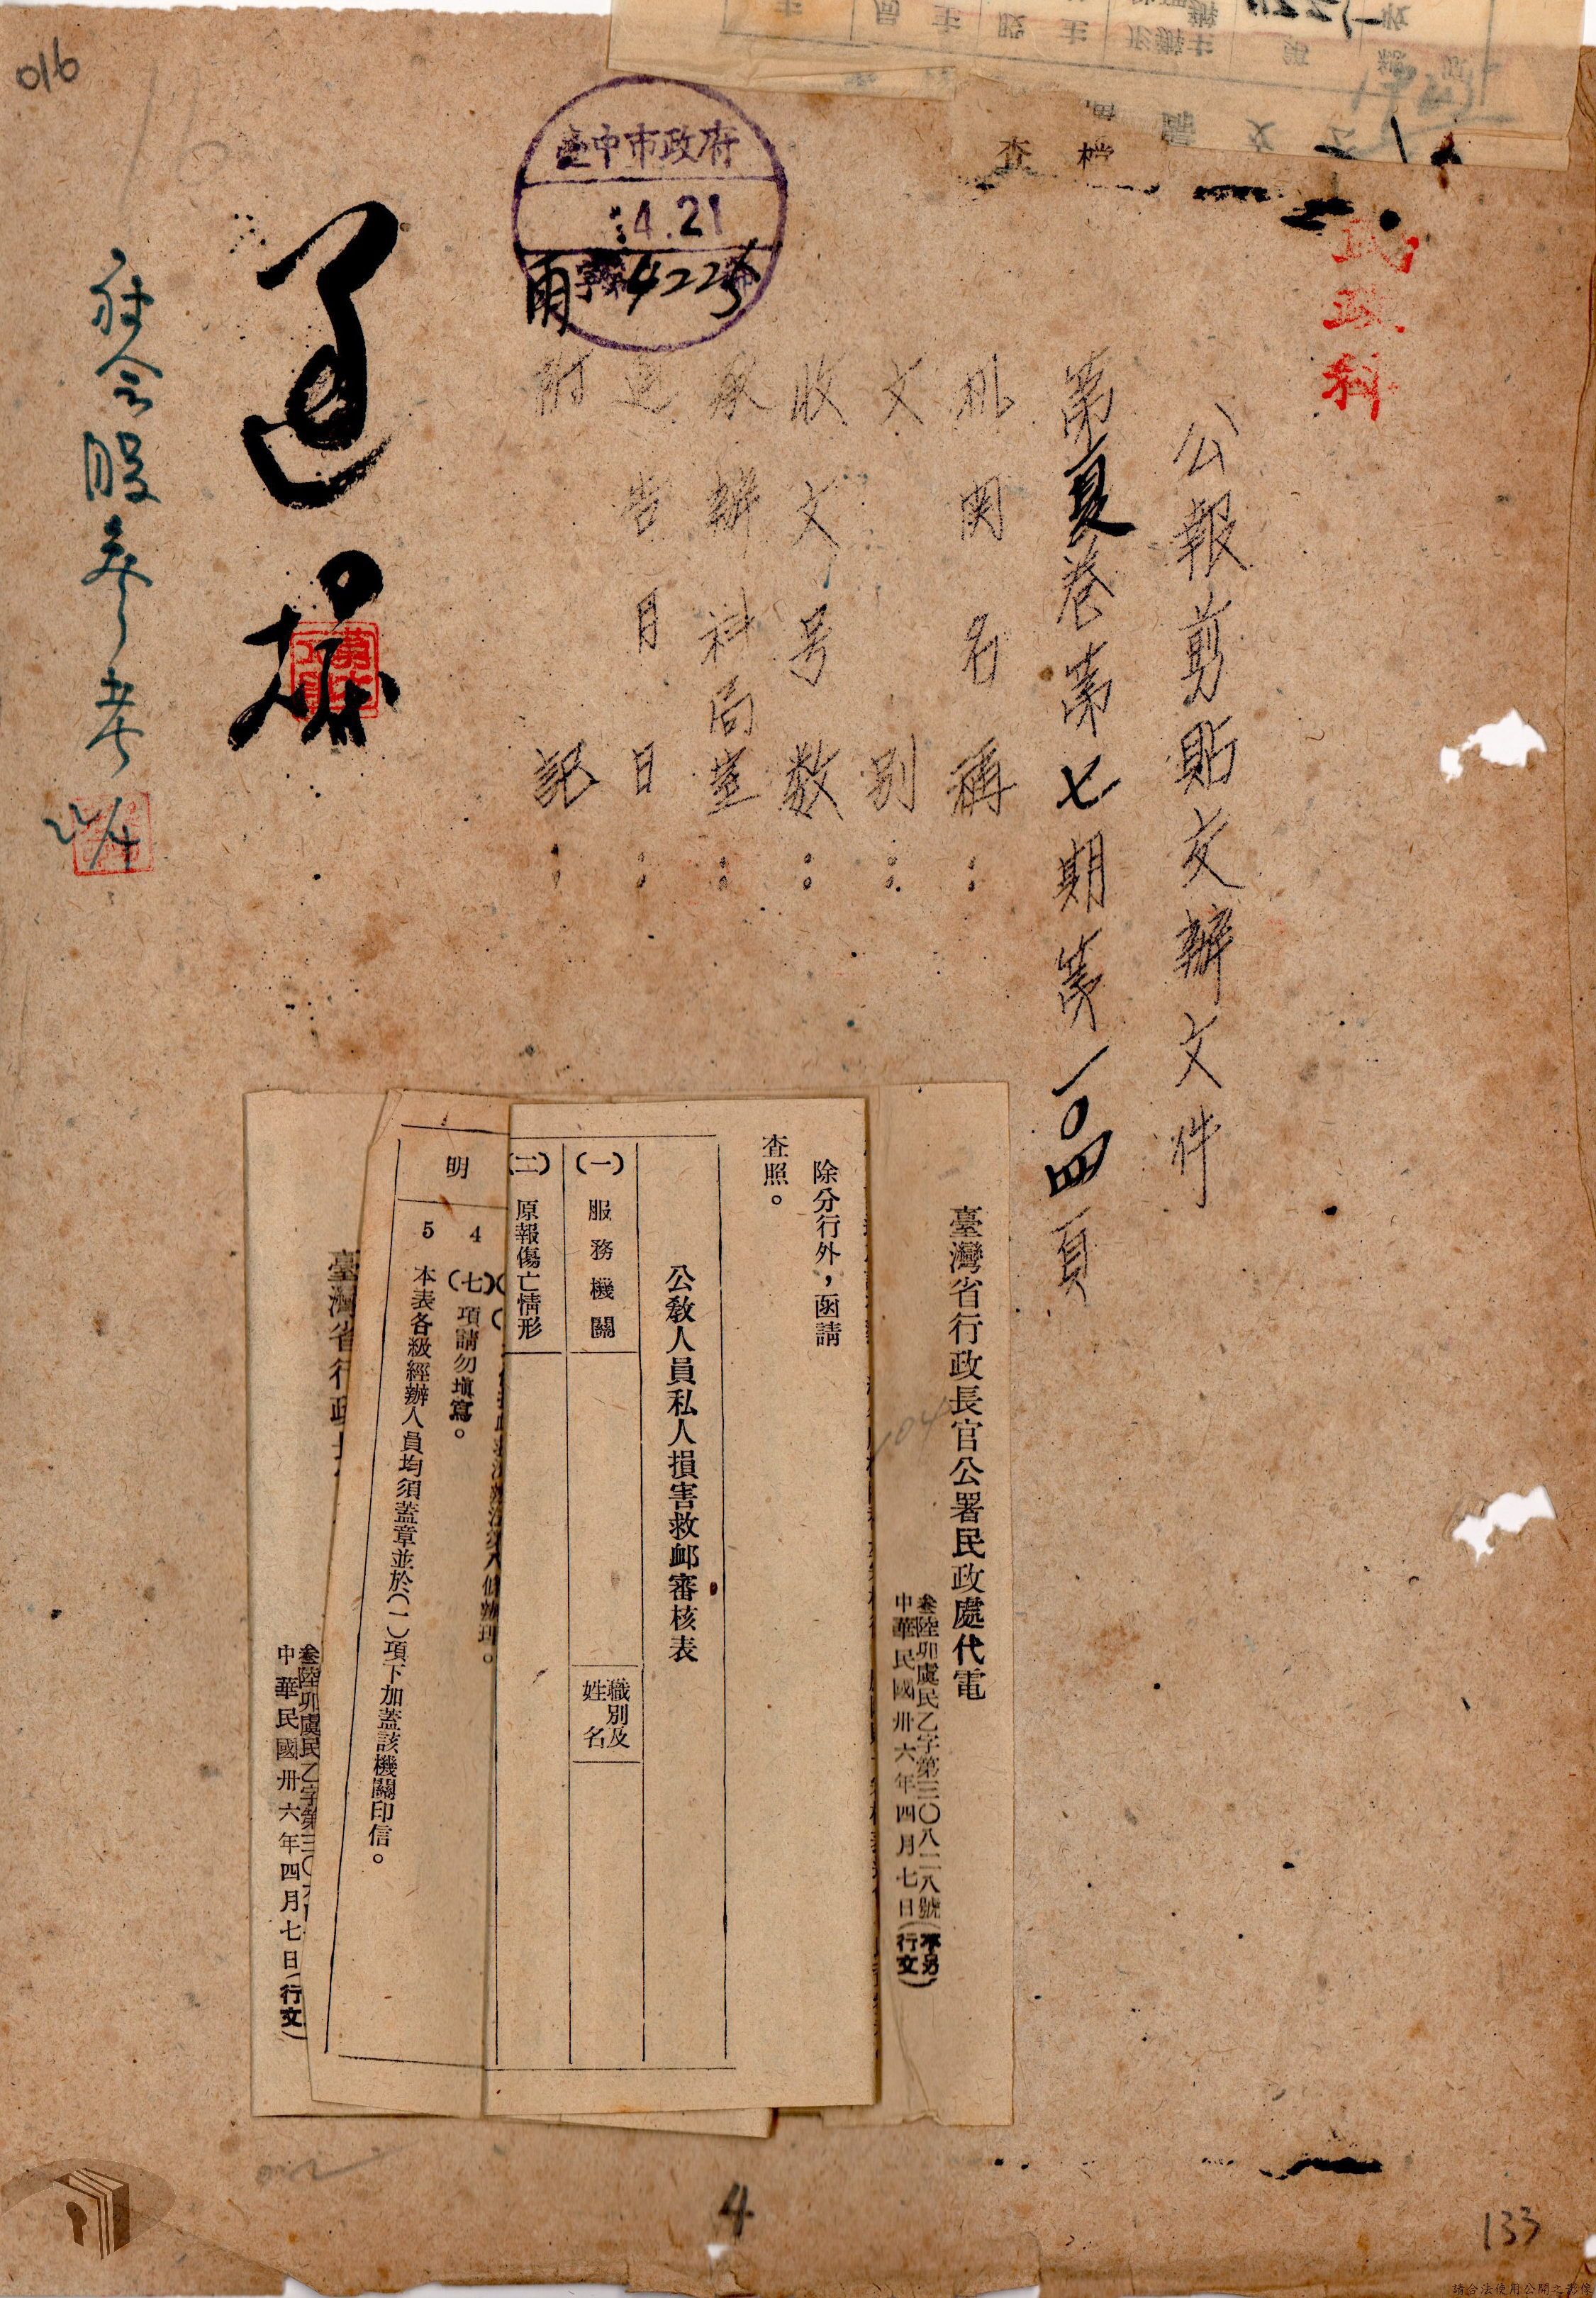 016
查
臺中市政府
4.21
字
4225
民政科
公報剪貼交辦文件
第夏卷第七期第一〇四頁
机関名稱：
文別：
收文号数：
承辦科局室：
通告月日：
附記：
社会股参考
22/4
臺灣省行政長官公署民政處代電
叁陸卯虞民乙字第三〇八二八號(不另
中華民國卅六年四月七日(行文)
除分行外，函請
查照。
公教人員私人損害救卹審核表
(一)服務機關
職別及
姓名
(二)原報傷亡情形
明
4 (七)項請勿塡寫。
5 本表各級經辦人員均須蓋章並於(一)項下加蓋該機關印信。
臺灣省行政
叁陸卯虞民乙字第三〇
中華民國卅六年四月七日(行文)
4
133
請合法使用公開之影像